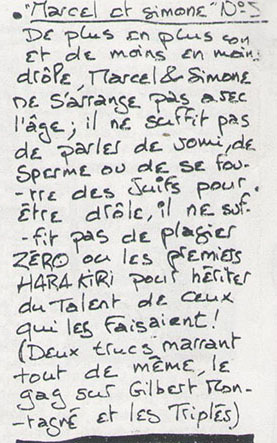 • "Marcel et Simone" N°5
De plus en plus con
et de moins en moins
drôle, Marcel & Simone
ne s'arrange pas avec
l'âge ; il ne suffit pas
de parler de vomi, de
sperme ou de se fou-
-tre des Juifs pour
être drôle, il ne suf-
-fit pas de plagier
ZÉRO ou les premiers
HARA KIRI pour hériter
du Talent de ceux
qui les faisaient !
(Deux trucs marrant
tout de même, le
gag sur Gilbert Mon-
-tagné et les Triplés)